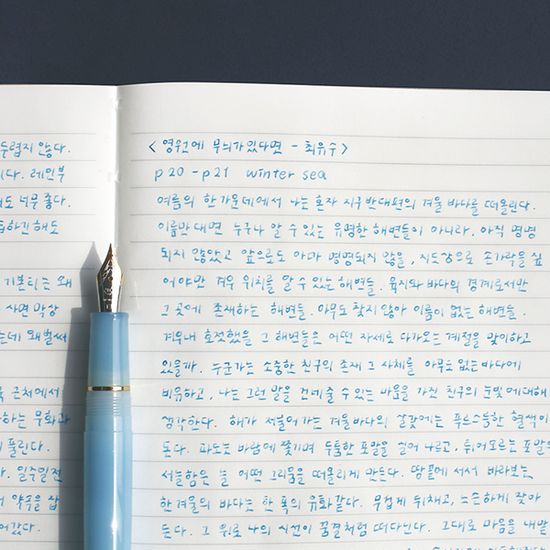 두렵지 않다.
다. 레인부
도 너무 좋다.
하긴 해도
기본티는 왜
사면 막상
는데 왜 벌써
근처에서
하는 무화과
풀린다.
. 일주일전
약속을 잡
어갔다.
<영원에 무늬가 있다면 - 최유수>
p20 -p21 winter sea
여름의 한가운데에서 나는 혼자 지구 반대편의 겨울 바다를 떠올린다.
이름만 대면 누구나 알 수 있는 유명한 해변들이 아니라. 아직 명명
되지 않았고 앞으로도 아마 명명되지 않을, 지도상으로 손가락을 짚
어야만 겨우 위치를 알 수 있는 해변들. 육지와 바다의 경계로서만
그곳에 존재하는 해변들. 아무도 찾지 않아 이름이 없는 해변들.
겨우내 호젓했을 그 해변들은 어떤 자세로 다가오는 계절을 맞이하고
있을까. 누군가는 소중한 친구의 존재 그 자체를 아무도 없는 바다에
비유하고, 나는 그런 말을 건네줄 수 있는 마음을 가진 친구의 눈빛에 대해
생각한다. 해가 저물어가는 겨울바다의 살갗에는 푸르스름한 혈색이
돈다. 파도는 바람에 쫓기며 두툼한 포말을 실어 나르고, 튀어오르는 포말의
서늘함은 늘 어떤 그리움을 떠올리게 만든다. 땅끝에 서서 바라보는
한겨울의 바다는 한 폭의 유화같다. 무겁게 뒤채고, 느슨하게 잦아
든다. 그 위로 나의 시선이 꿈결처럼 떠다닌다. 그대로 마음을 내맡